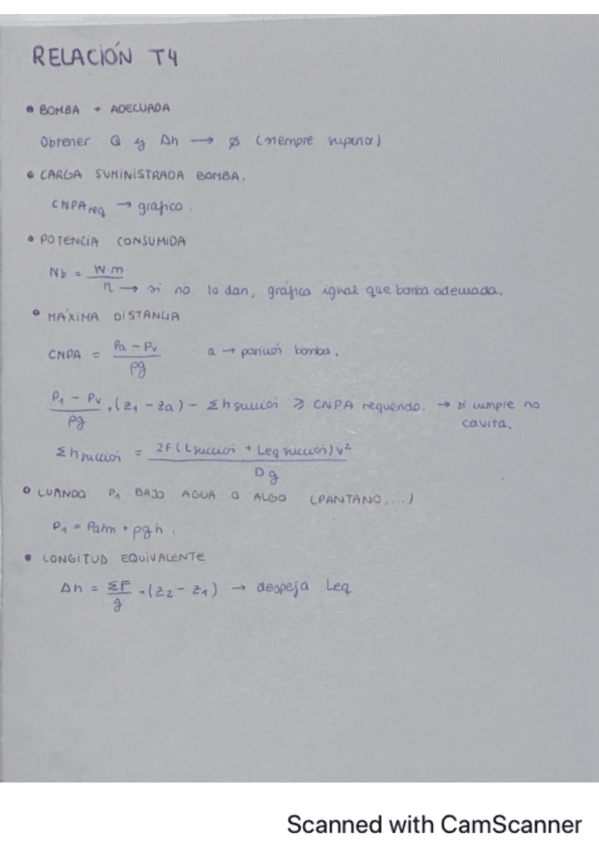 RELACIÓN T4
• BOMBA + ADECUADA
Obtener Q y Δh → ø (siempre superior)
• CARGA SUMINISTRADA BOMBA.
CNPA req → gráfico.
• POTENCIA CONSUMIDA
N_b = W·m / η → si no lo dan, gráfica igual que bomba adecuada.
• MÁXIMA DISTANCIA
CNPA = (Pa - Pv) / ρg a → posición bomba.
(P1 - Pv) / ρg + (z1 - za) - Σh succión ≥ CNPA requerido. → si cumple no
cavita.
Σh succión = 2f (Lsucción + Leq succión) v² / Dg
• CUANDO P1 BAJO AGUA O ALGO (PANTANO,...)
P1 = Patm + ρgh.
• LONGITUD EQUIVALENTE
Δh = ΣF / g + (z2 - z1) → despeja Leq
Scanned with CamScanner